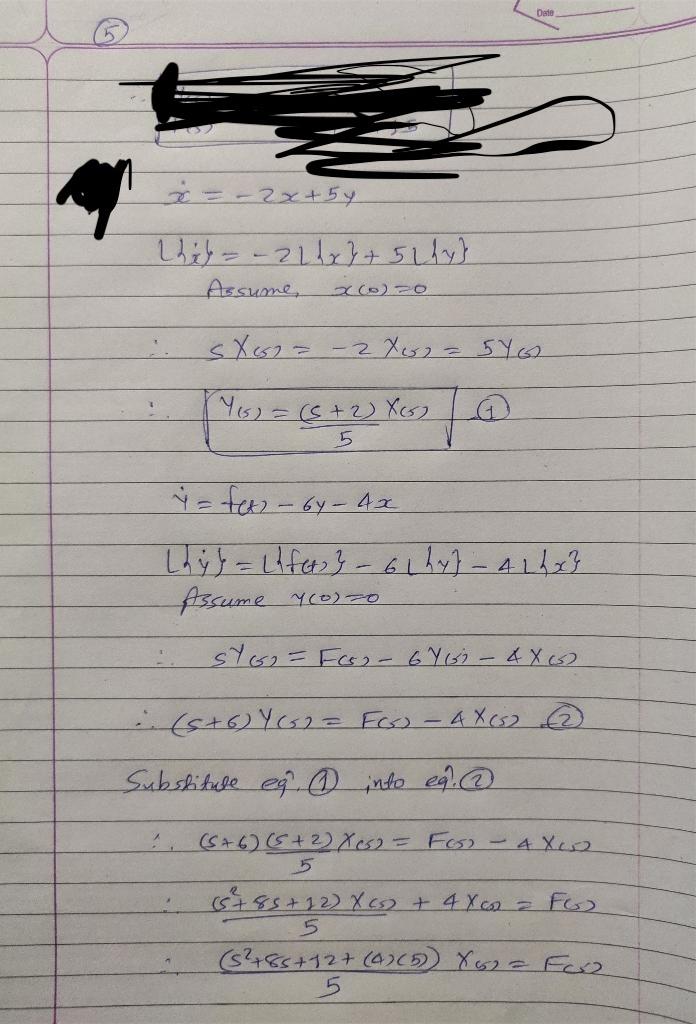 Date
⑤
ẋ = -2x+5y
L{ẋ} = -2L{x} + 5L{y}
Assume, x(0)=0
∴ sX(s) = -2X(s) = 5Y(s)
∴ Y(s) = (s+2)X(s)/5 ①
ẏ = f(t) - 6y - 4x
L{ẏ} = L{f(t)} - 6L{y} - 4L{x}
Assume y(0)=0
∴ sY(s) = F(s) - 6Y(s) - 4X(s)
∴ (s+6)Y(s) = F(s) - 4X(s) ②
Substitute eqn. ① into eqn. ②
∴ (s+6)(s+2)X(s)/5 = F(s) - 4X(s)
∴ (s²+8s+12)X(s)/5 + 4X(s) = F(s)
∴ (s²+8s+12+(4)(5))/5 X(s) = F(s)